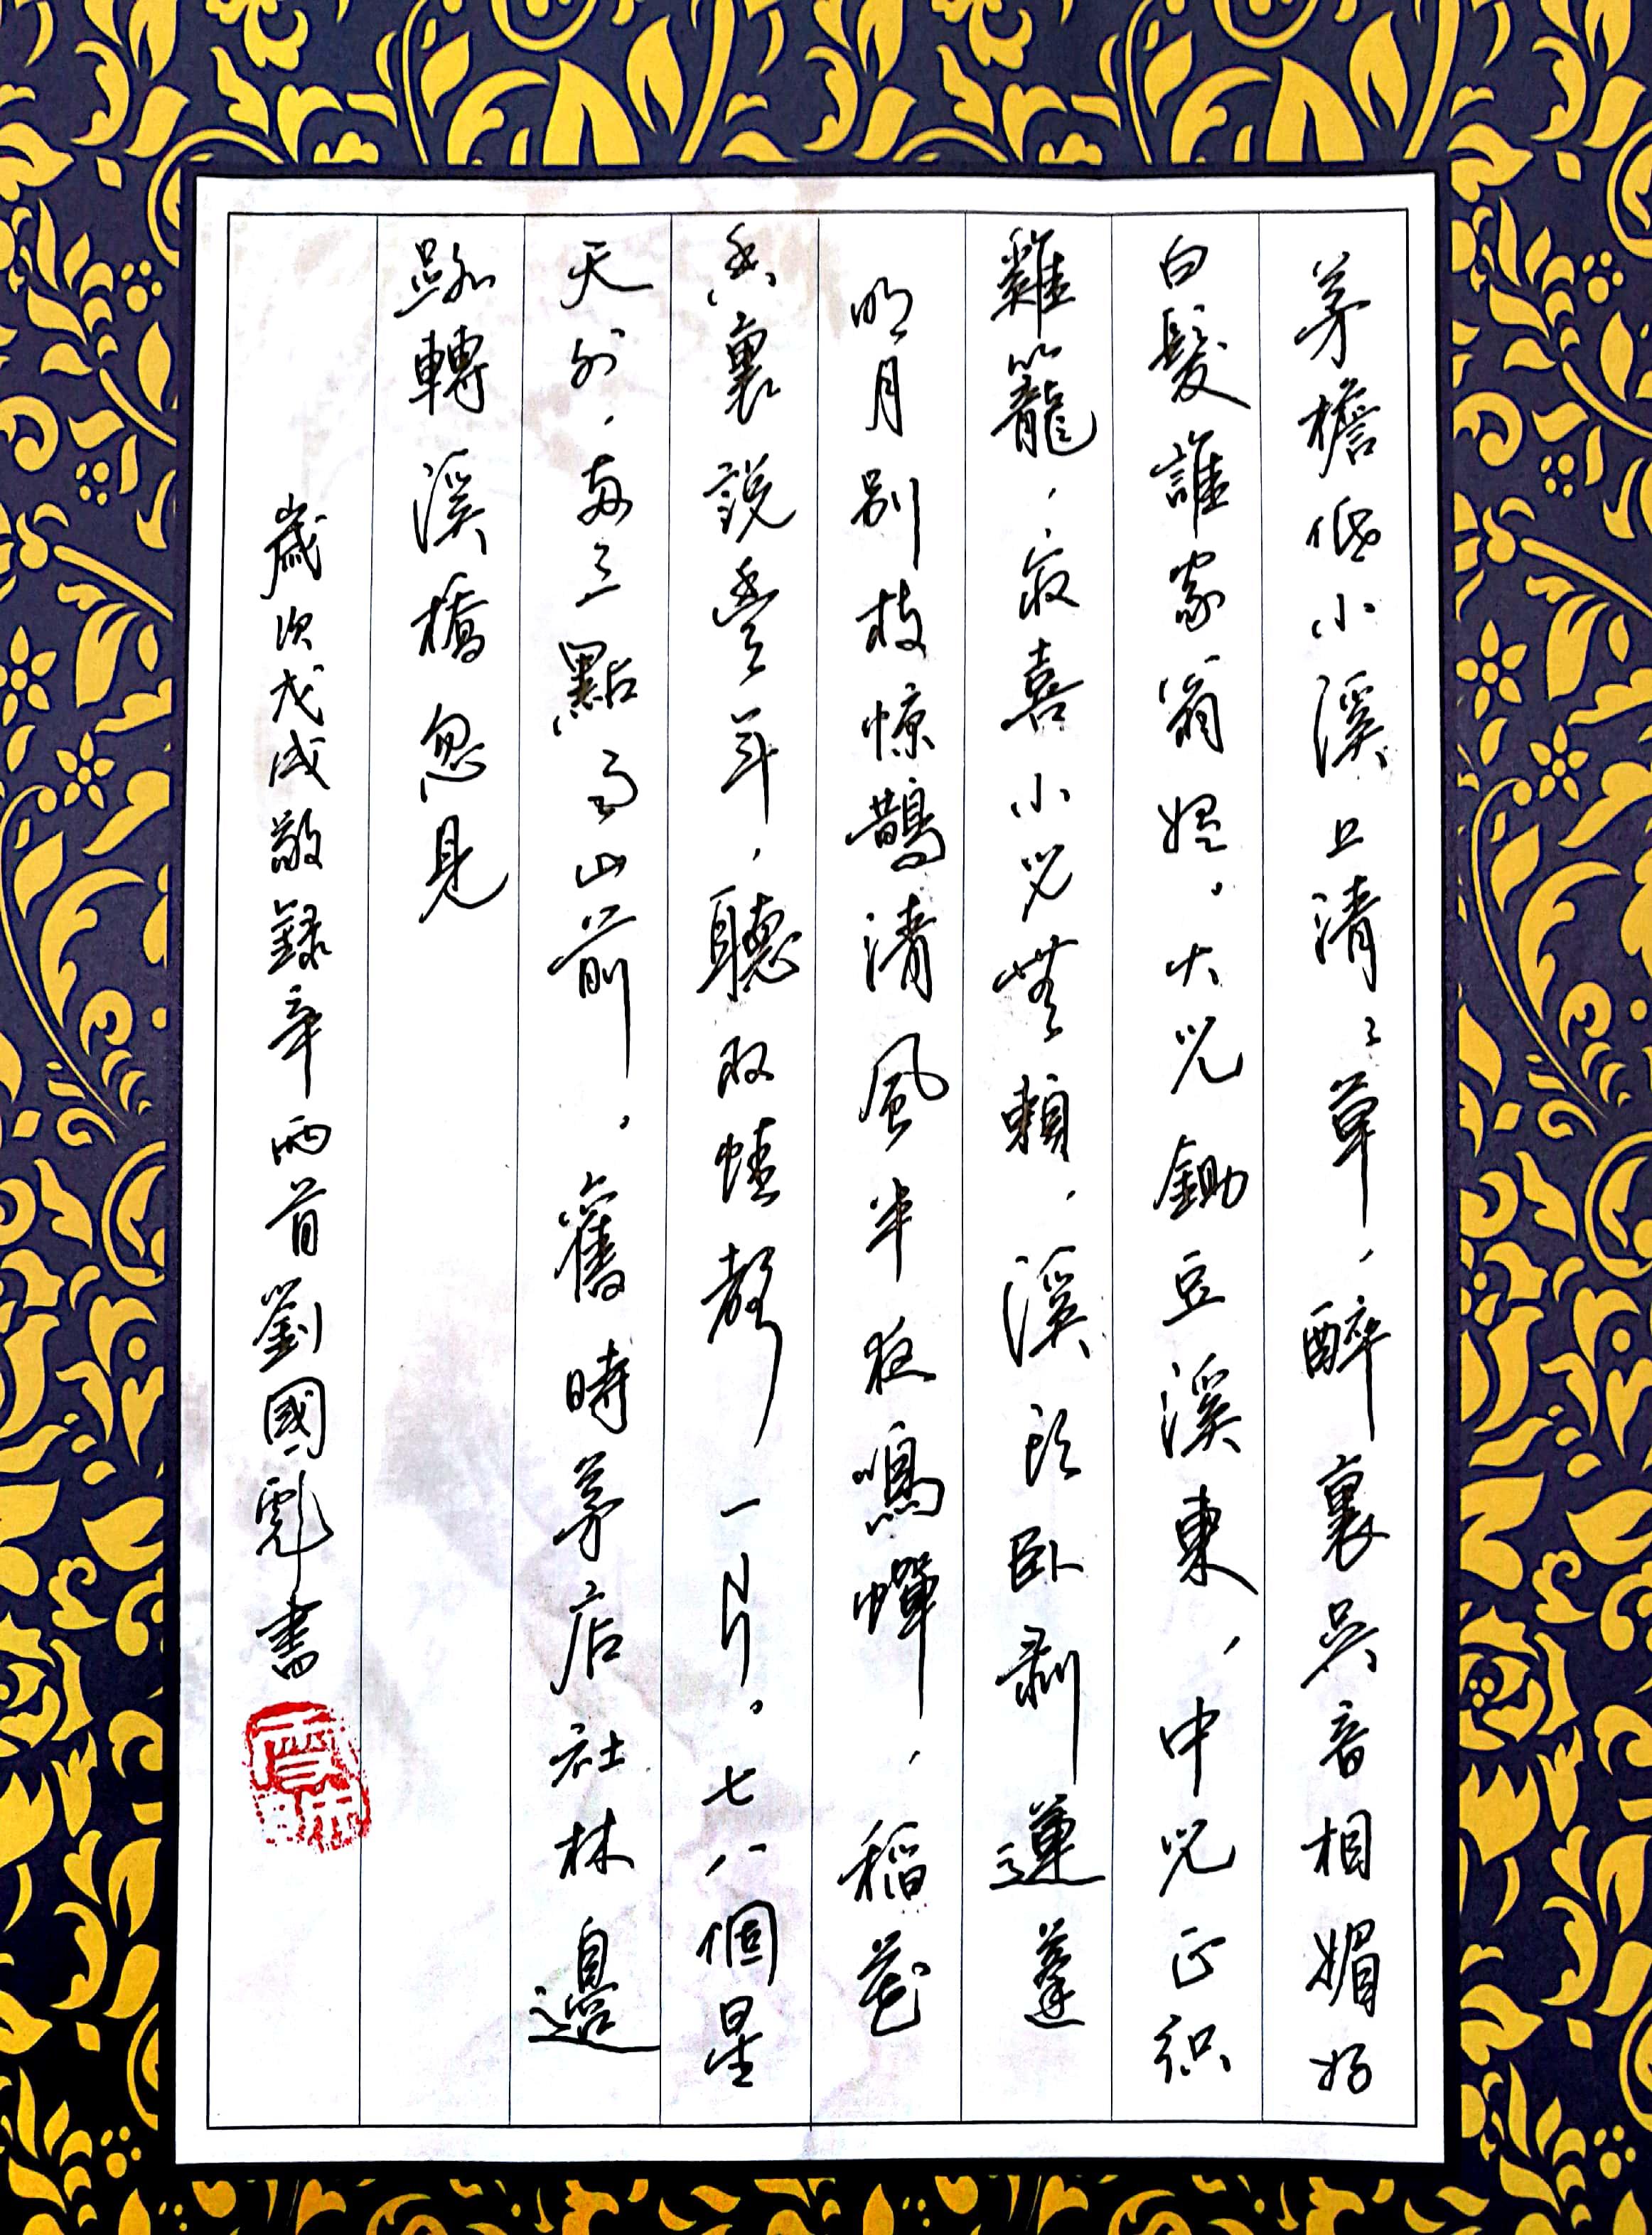 茅檐低小溪上清〻草，醉裏吳音相媚好
白髮誰家翁媪。大兒鋤豆溪東，中兒正織
雞籠，最喜小兒無賴，溪頭臥剥蓮蓬
明月别枝惊鵲清風半夜鳴蟬，稻花
香裏説豐年，聽取蛙聲一片。七八個星
天外，兩三點雨山前。舊時茅店社林邊
路轉溪橋忽見
歲次戊戌敬録辛兩首劉國彪書